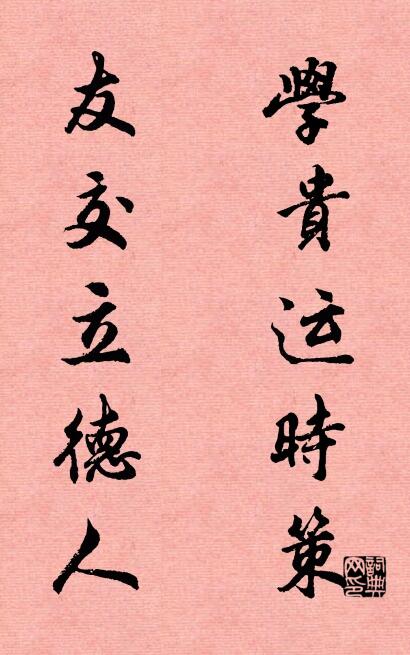 學貴运時策
友交立德人
詞典网印